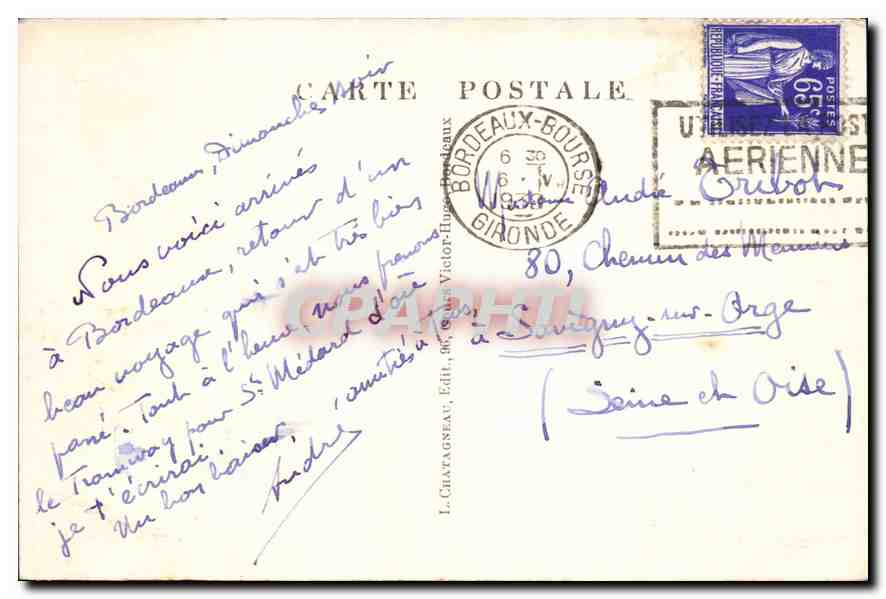 CARTE POSTALE
Bordeaux, Dimanche soir
Nous voici arrivés
à Bordeaux, retour d'un
beau voyage qui s'est très bien
passé. Tout à l'heure, nous prenons
le Tramway pour St Médard d'où
je t'écrirai. amitiés à tous,
Un bon baiser,
André
L. CHATAGNEAU, Edit., 96, Cours Victor-Hugo, Bordeaux
RÉPUBLIQUE FRANÇAISE
POSTES
65c
BORDEAUX-BOURSE
6 30
6 · IV
GIRONDE
UTILISEZ LA POSTE
AERIENNE
André
80, Chemin des
à Savigny-sur-Orge
(Seine et Oise)
CPARHTI